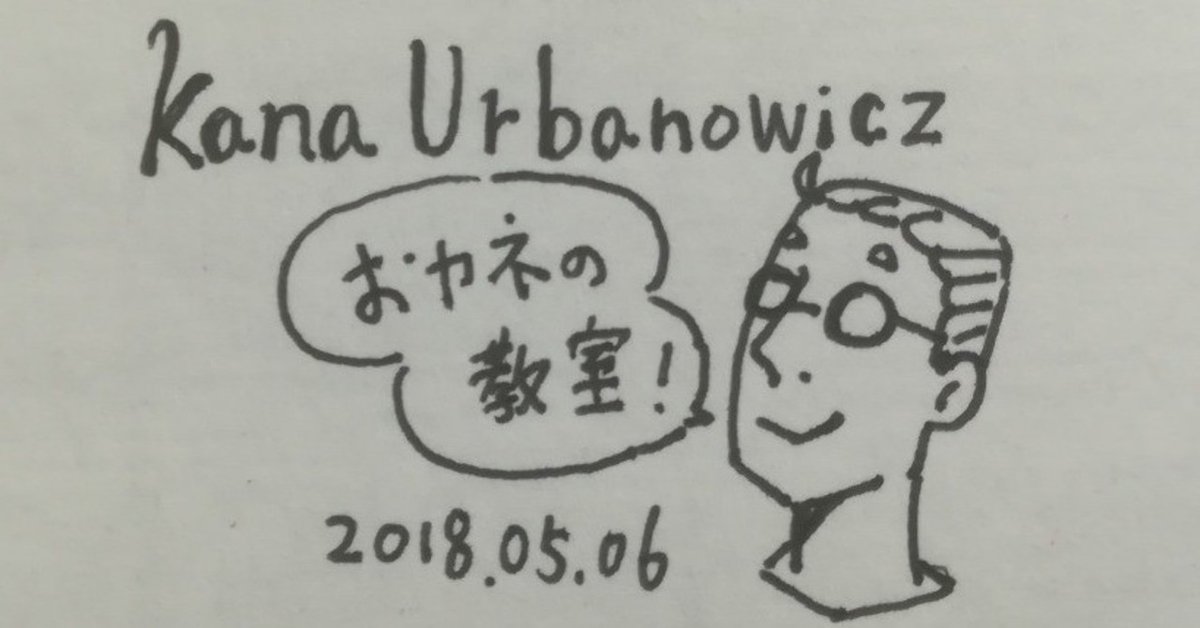 Kana Urbanowicz
おカネの
教室!
2018.05.06